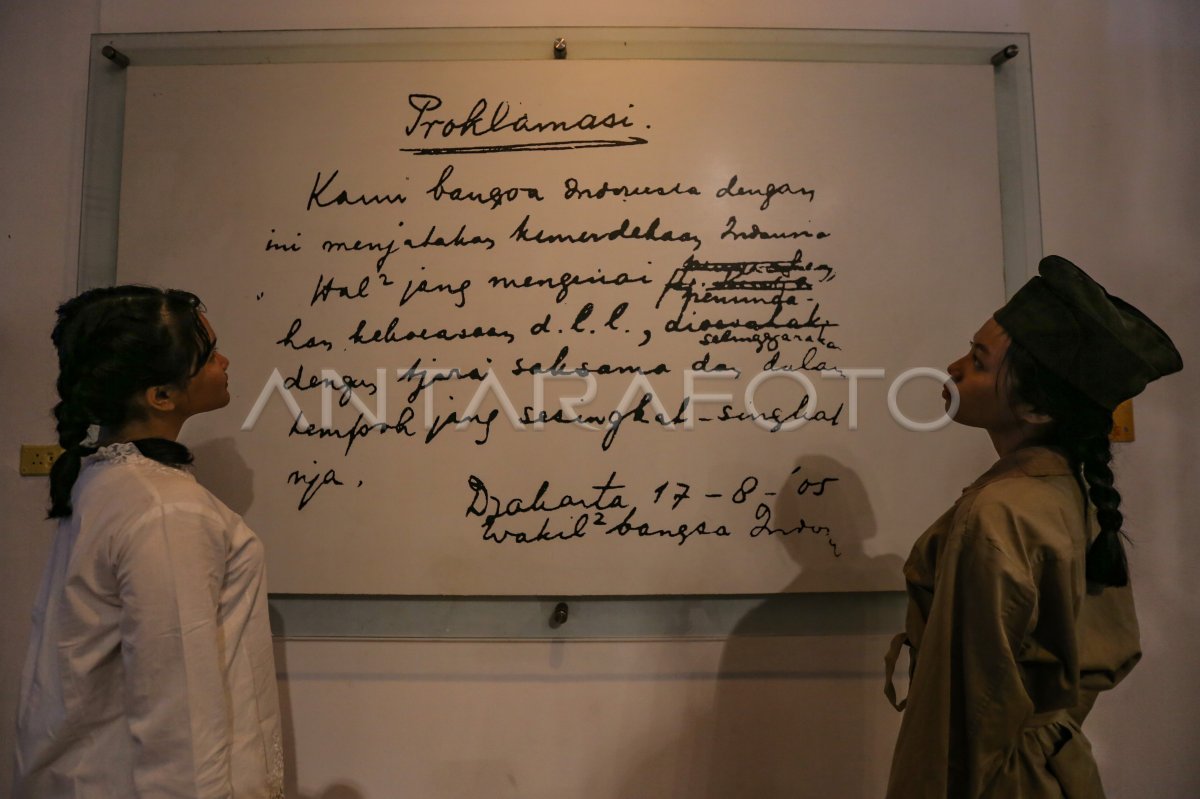 Proklamasi.
Kami bangsa Indonesia dengan
ini menjatakan kemerdekaan Indonesia
Hal² jang mengenai
peminda-
han kekoeasaan d.l.l., dioesahakan
selenggarakan
dengan tjara saksama dan dalam
tempoh jang sesingkat-singkat
nja.
Djakarta 17-8-'05
Wakil² bangsa Indon
ANTARAFOTO